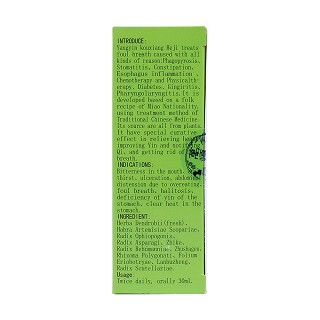 INTRODUCE:
Yangyin kouxiang Heji treats
foul breath caused with all
kinds of reason:Phagopyrosis,
Stomatitis, Constipation,
Esophagus Inflammation,
Chemotherapy and Physicalth
erapy, Diabetes, Gingiritis,
Pharyngolaryngitis. It is
developed based on a folk
recipe of Miao Nationality,
using treatment method of
Traditional Chinese Medicine.
Its source are all from plants.
It have special curative
effect in relieving heat
improving Yin and
Qi, and getting rid of
breath.
INDICATIONS:
Bitterness in the mouth,
thirst, ulceration, abdomin
distension due to overeating,
foul breath, halitosis,
deficiency of yin of the
stomach, clear heat in the
stomach.
INGREDIENT:
Herba Dendrobii(fresh),
Habra Artemisiae Scopariae,
Radix Ophiopogonis,
Radix Asparagi, Zhike,
Radix Rehmanniae, Zhushagen,
Rhizoma Polygonati, Folium
Eriobotryae, Lanbuzheng,
Radix Scutellariae.
Usage:
Twice daily, orally 30ml.